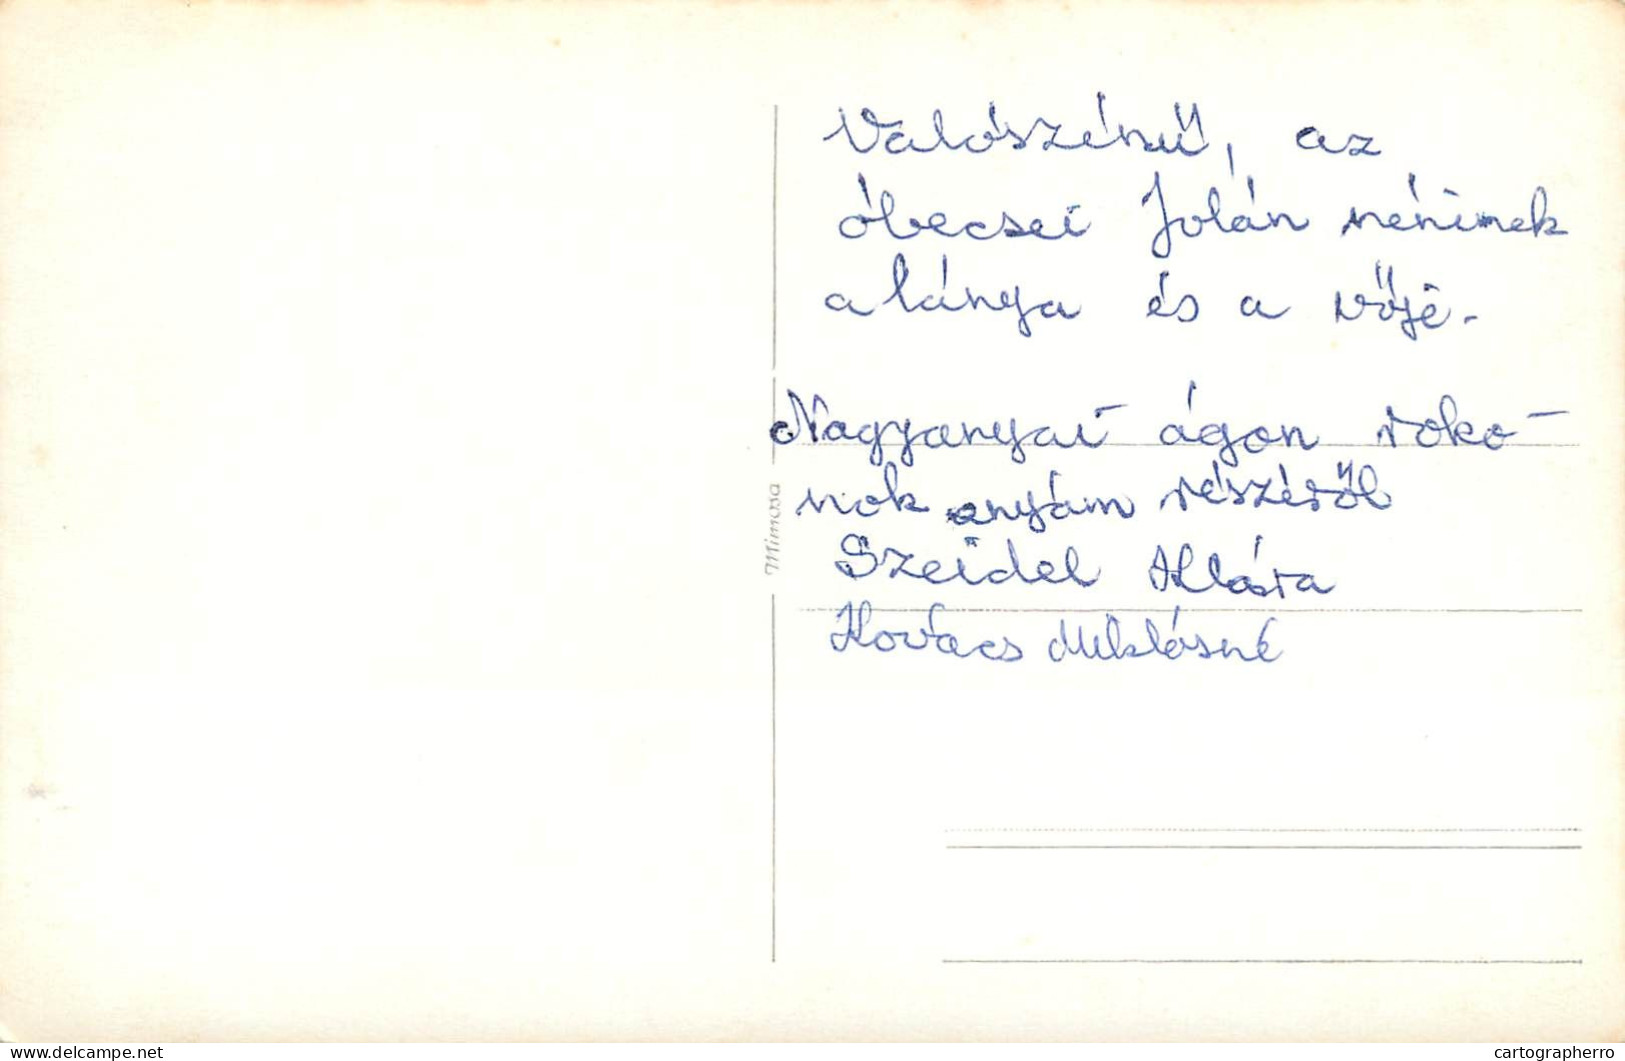 Valószénű, az
óbecsei Jolán nénimek
a lánya és a vője.
Nagyanyai ágon roko-
nok anyám részéről
Szeidel Klára
Kovács Miklósné
Mimosa
delcampe.net
cartographerro